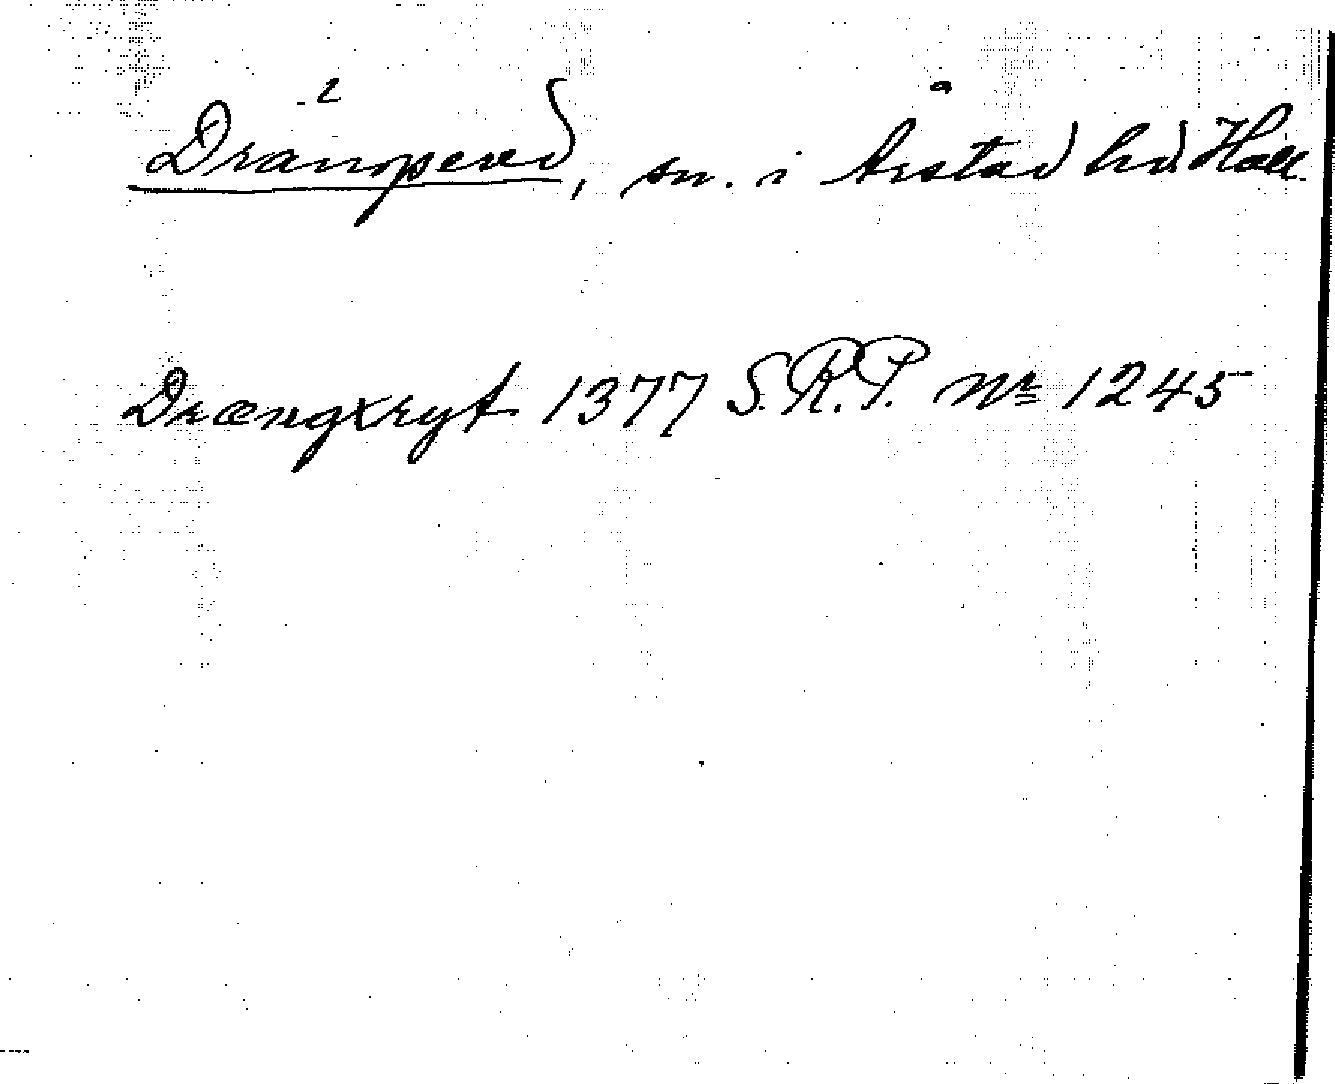 Drängsered, sn. i Årstad hd Hall.
Drængxryt 1377 S.R.P. Nr 1245